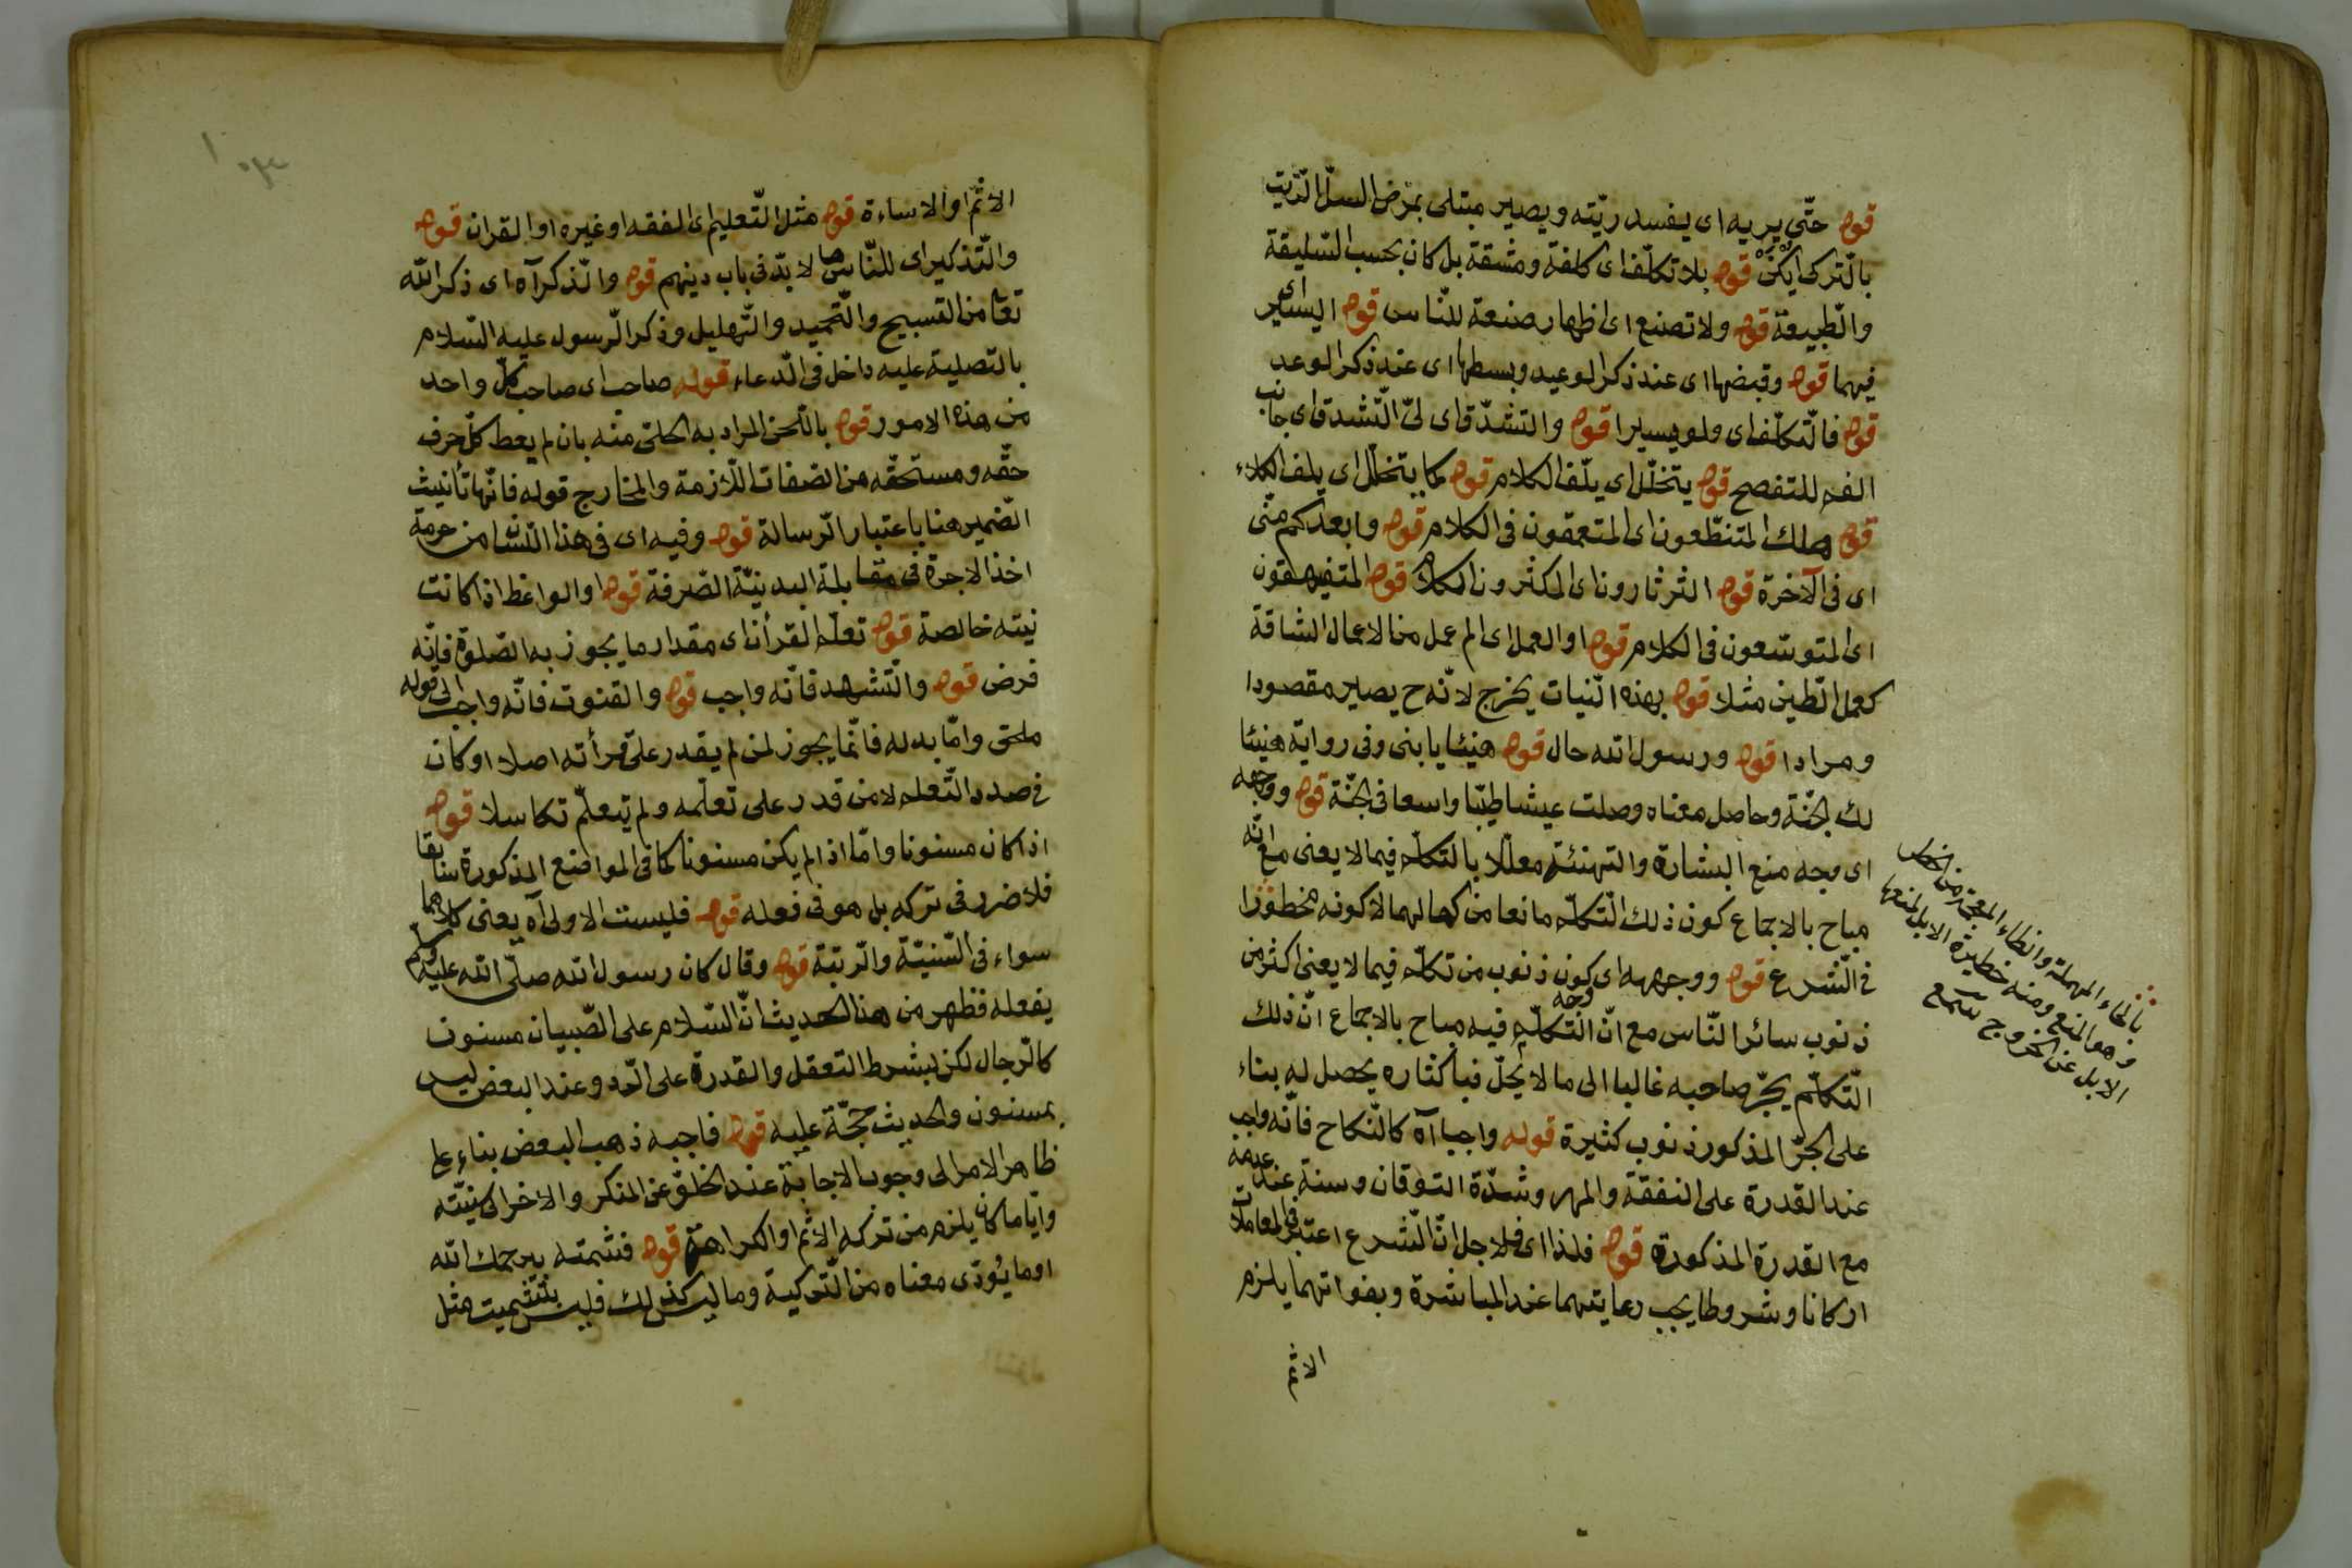 قوله حتى يريه اى يفسد ريته ويصير مبتلى بمرض السل الذى
بالتركى قوله بلا تكلف اى كلفة ومشقة بل كان بحسب السليقة
والطبيعة قوله ولا تصنع اى اظهار صنعة للناس قوله اليسير اى
فيهما قوله وقبضها اى عند ذكر الوعيد وبسطها اى عند ذكر الوعد
قوله فالتكلف اى ولو يسيرا قوله والتشدق اى لىّ الشدق اى جانب
الفم للتفصح قوله يتخلل اى يلف الكلام قوله كما يتخلل اى يلف الكلاء
قوله هلك المتنطعون اى المتعمقون فى الكلام قوله وابعدكم منى
اى فى الآخرة قوله الثرثارون اى المكثرون الكلام قوله المتفيهقون
اى المتوسعون فى الكلام قوله او العمل اى الم عمل من الاعمال الشاقة
كعمل الطين مثلا قوله بهذه النيات يخرج لانه ح يصير مقصودا
ومرادا قوله ورسول الله حال قوله هنيئا يا بنى وفى رواية هنيئا
لك الجنة وحاصل معناه وصلت عيشا طيبا واسعا فى الجنة قوله ووجهه
اى وجه منع البشارة والتهنئة معللا بالتكلم فيما لا يعنى مع انه
مباح بالاجماع كون ذلك التكلم مانعا من كمالهما لا كونه محظورا
فى الشرع قوله ووجهه اى وجه كون ذنوب من تكلم فيما لا يعنى اكثر من
ذنوب سائر الناس مع ان التكلم فيه مباح بالاجماع ان ذلك
التكلم يجر صاحبه غالبا الى ما لا يحل فباكثاره يحصل له بناء
على الجر المذكور ذنوب كثيرة قوله واجبا آه كالنكاح فانه واجب
عند القدرة على النفقة والمهر وشدة التوقان وسنة عند عدمه
مع القدرة المذكورة قوله فلذا اى فلاجل ان الشرع اعتبر فى المعاملات
اركانا وشروطا يجب رعايتهما عند المباشرة وبفواتهما يلزم
الاثم
بالحاء المهملة والظاء المعجمة من الحظر
وهو المنع ومنه حظيرة الابل لمنعها
الابل عن الخروج
الاثم او الاساءة قوله مثل التعليم اى الفقه او غيره او القران قوله
والتذكير اى للناس مما لا بد فى باب دينهم قوله والذكر آه اى ذكر الله
تعا من التسبيح والتحميد والتهليل وذكر الرسول عليه السلام
بالتصلية عليه داخل فى الدعاء قوله صاحب اى صاحب كل واحد
من هذه الامور قوله باللحن المراد به الجلى منه بان لم يعط كل حرف
حقه ومستحقه من الصفات اللازمة والمخارج قوله فانها تأنيث
الضمير هنا باعتبار الرسالة قوله وفيه اى فى هذا الشان من حرمة
اخذ الاجرة فى مقابلة البدنية الصرفة قوله او الواعظ اذا كانت
نيته خالصة قوله تعلم القرأن اى مقدار ما يجوز به الصلوة فانه
فرض قوله والتشهد فانه واجب قوله والقنوت فانه واجب الى قوله
ملحق واما بدله فانما يجوز لمن لم يقدر على قرأته اصلا او كان
فى صدد التعلم لا من قدر على تعلمه ولم يتعلم تكاسلا قوله
اذا كان مسنونا واما اذا لم يكن مسنونا كما فى المواضع المذكورة سابقا
فلا ضرر فى تركه بل هو فى فعله قوله فليست الاولى آه يعنى كلاهما
سواء فى السنية والرتبة قوله وقال كان رسول الله صلى الله عليه وسلم
يفعله فظهر من هذا الحديث ان السلام على الصبيان مسنون
كالرجال لكن بشرط التعقل والقدرة على الرد وعند البعض ليس
بمسنون والحديث حجة عليه قوله فاجبه ذهب البعض بناء على
ظاهر الامر الى وجوب الاجابة عند الخلو عن المنكر والاخر الى سنيته
وايّاما كان يلزم من تركه الاثم او الكراهة قوله فشمته بيرحمك الله
او ما يؤدى معناه من التركية وما ليس كذلك فليس بتشميت مثل